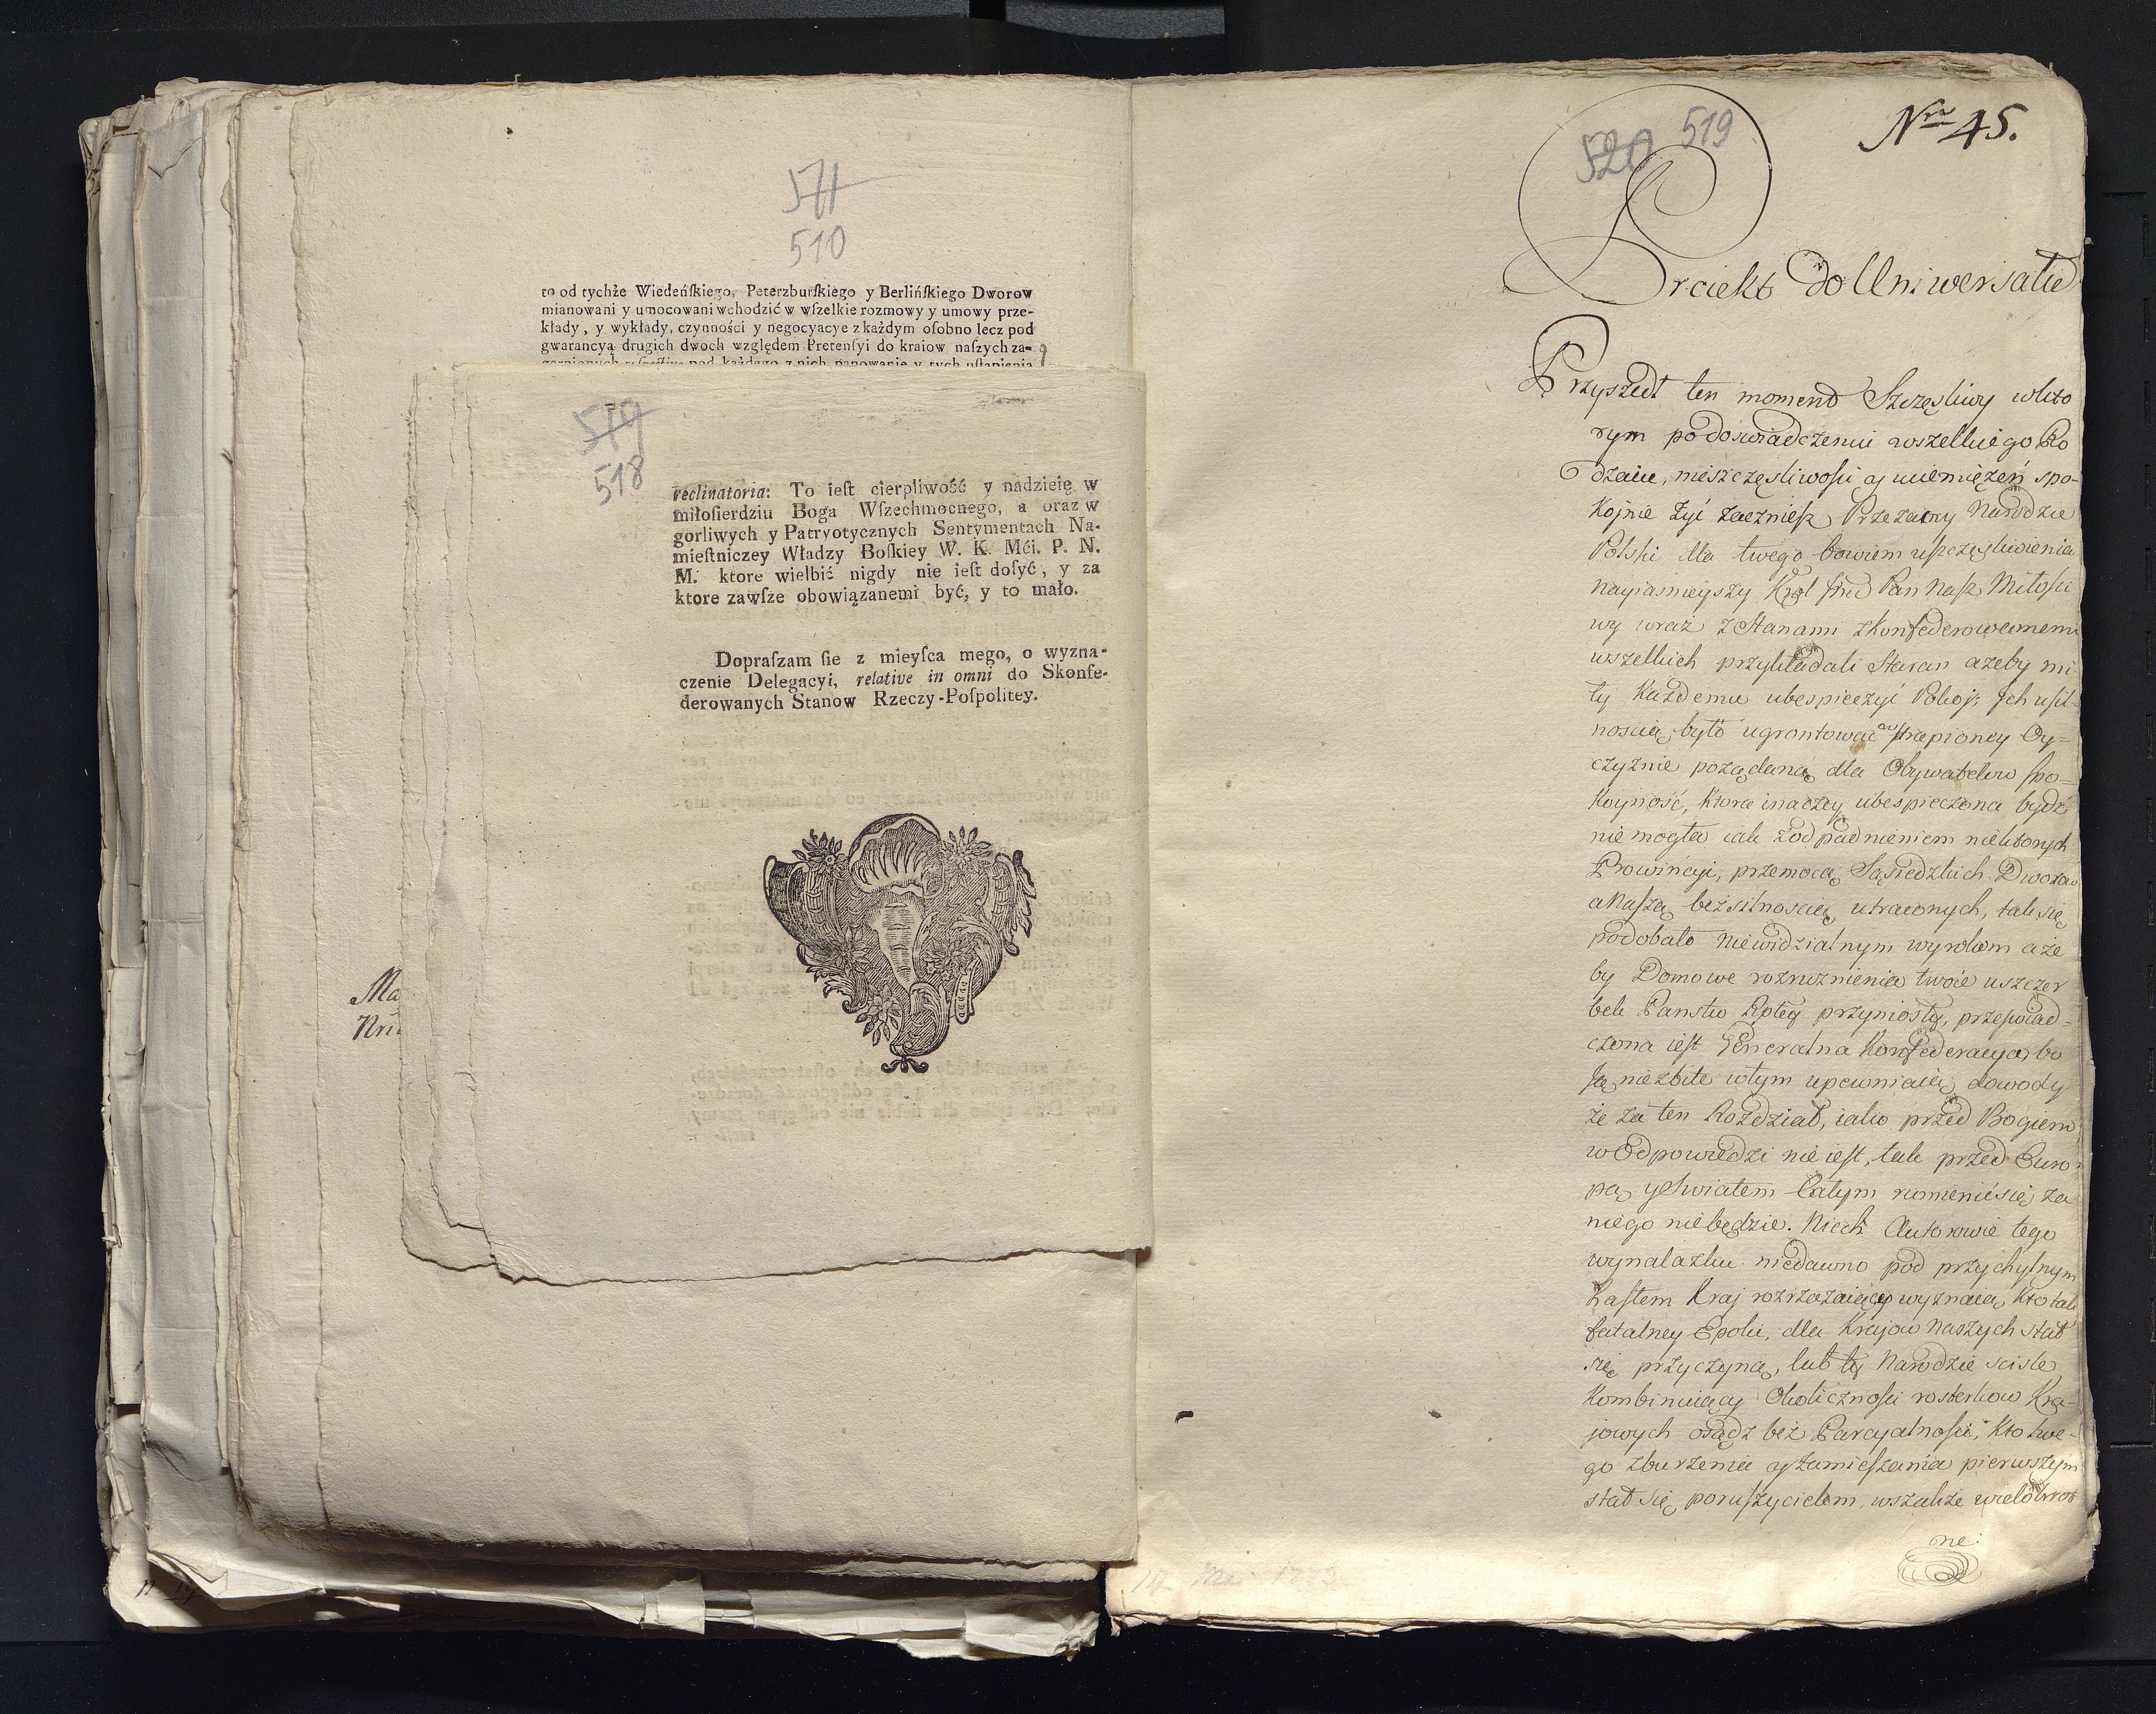 571
510
to od tychże Wiedeńſkiego, Peterzburſkiego y Berlińſkiego Dworow
mianowani y umocowani wchodzić w wſzelkie rozmowy y umowy prze-
kłady, y wykłady, czynności y negocyacye z każdym oſobno lecz pod
gwarancyą drugich dwoch względem Pretenſyi do kraiow naſzych za-
garnionych reſpective pod każdego z nich panowanie y tych uſtąpienia
519
518
reclinatoria: To ieſt cierpliwość y nadzieię w
miłoſierdziu Boga Wſzechmocnego, a oraz w
gorliwych y Patryotycznych Sentymentach Na-
mieſtniczey Władzy Boſkiey W. K. Mći. P. N.
M. ktore wielbić nigdy nie ieſt doſyć, y za
ktore zawſze obowiązanemi być, y to mało.
Dopraſzam ſie z mieyſca mego, o wyzna-
czenie Delegacyi, relative in omni do Skonfe-
derowanych Stanow Rzeczy-Poſpolitey.
Ma
Nri
520 519
Nro 45.
Proiekt do Uniwersału
Przyszedł ten moment Szczęsliwy wkto
rym podoswiadczeniu wszelkiego Ro
dzaiu, nieszczęsliwosci y uciemięzeń spo-
kojnie żyć zaczniesz Przezacny Narodzie
Polski dla twego bowiem uszczęsliwienia
nayiasnieyszy Krol Jmć Pan Nasz Miłosci
wy wraz z Stanami zkonfederowanemi
wszelkich przykładali Staran azeby mi-
ły każdemu ubespieczyć Pokoj; Jch usil-
noscią było ugrontować w strapioney Oy-
czyznie poządaną dla Obywatelow spo-
koyność, ktora inaczey ubespieczona bydź
nie mogła iak zodpadnieniem niektorych
Prowincyi, przemocą Sąsiedzkich Dworow
a Naszą bezsilnoscią utraconych, tak się
podobało niewidzialnym wyrokom aże
by Domowe rozruznienia twoie uszczer
bek Panstw Rptey przyniosły, przeswiad-
czona iest Generalna Konfederacya, bo
Ją niezbite wtym upewniaią dowody
że za ten Rozdział, iako przed Bogiem
w Odpowiedzi nie iest, tak przed Euro-
pą y Swiatem Całym rumienić się za
niego niebędzie. Niech Autorowie tego
wynalazku niedawno pod przychylnym
hasłem Kraj rozrzazaiący wyznaią kto tak
fatalney Epoki, dla Krajow Naszych stał
się przyczyną, lub ty Narodzie sciste
kombinuiący Okolicznosci rosterkow Kra-
jowych osądz bez Parcyalnosci, kto twe-
go zburzenia y zamieszania pierwszym
stał się poruszycielem, wszakże wielokrot
ne:
14 Mai 1773